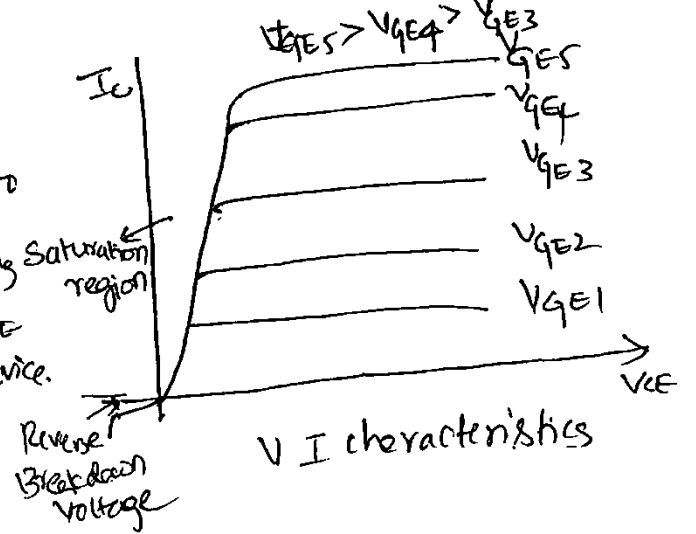 VGE5 > VGE4 > VGE3
IC
VGE5
VGE4
VGE3
Saturation
region
VGE2
VGE1
vice.
VCE
Reverse
Breakdown
Voltage
V I characteristics